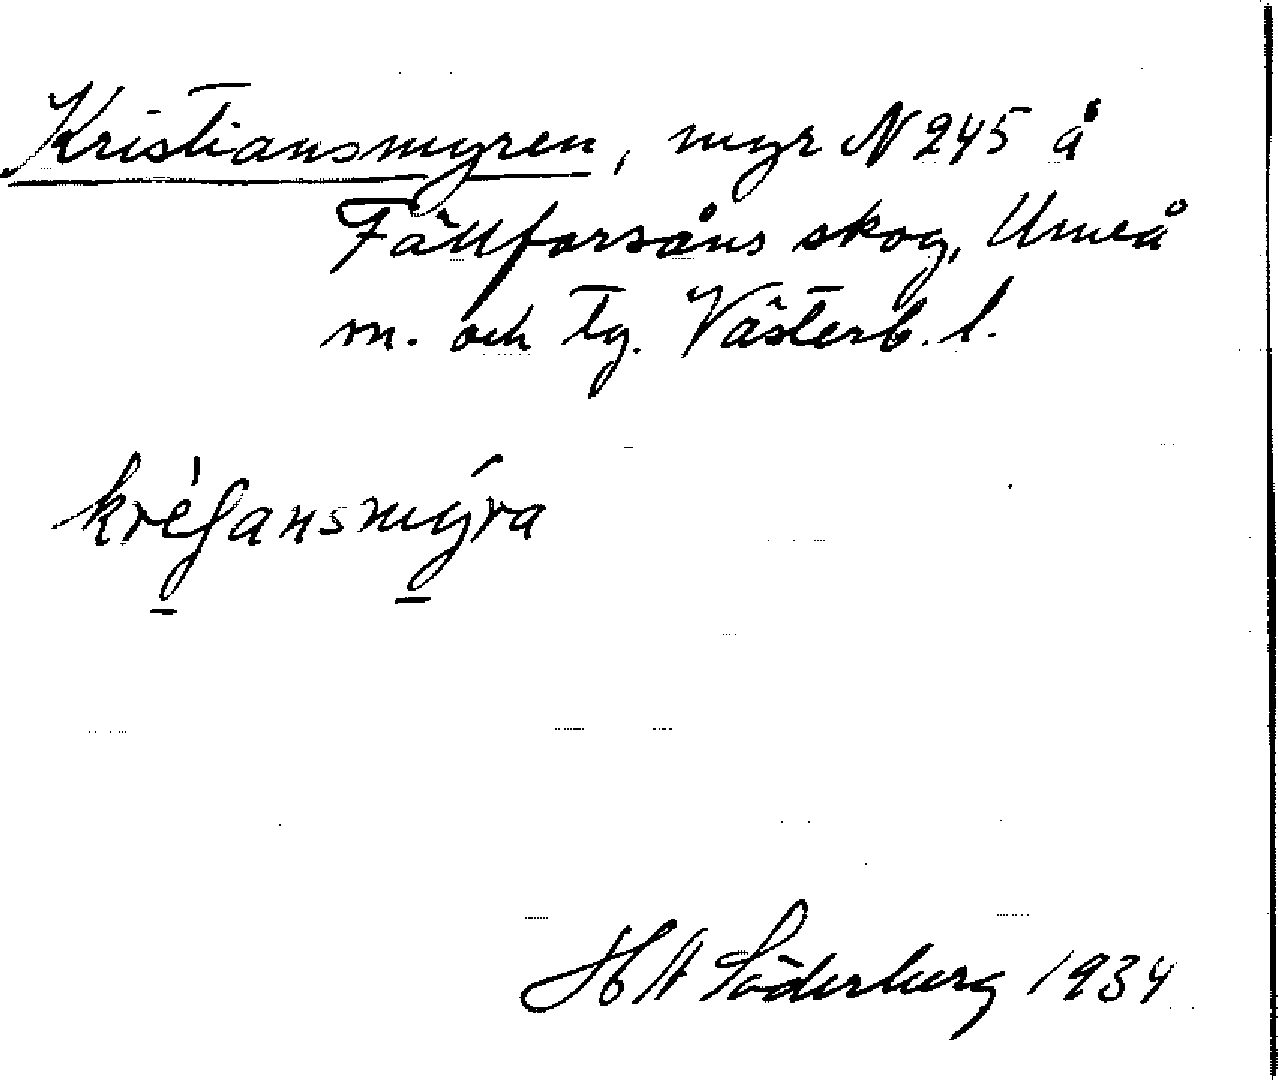 Kristiansmyren, myr N 245 å
Fällforsåns skog, Umeå
m. och tg. Västerb. l.
H A Söderberg 1934